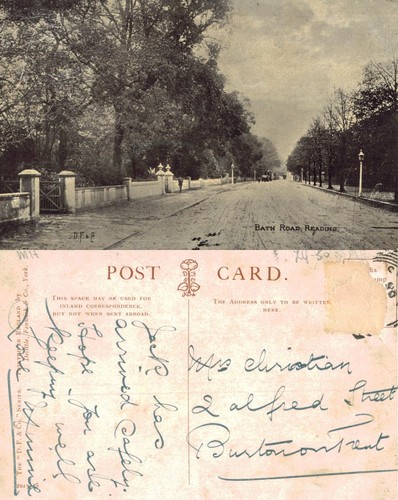 D.F.&R.
BATH ROAD, READING.
POST CARD.
THIS SPACE MAY BE USED FOR
INLAND CORRESPONDENCE,
BUT NOT WHEN SENT ABROAD.
THE ADDRESS ONLY TO BE WRITTEN
HERE.
Jack has
arrived safely.
Hope you are
keeping well
Mrs Christian
2 Alfred Street
Burton on Trent